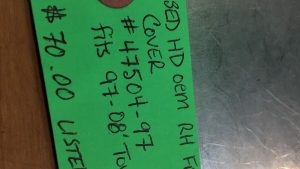 SED HD OEM RH F
COVER
#47504-97
fits 97-08' To
$70.00 LISTE